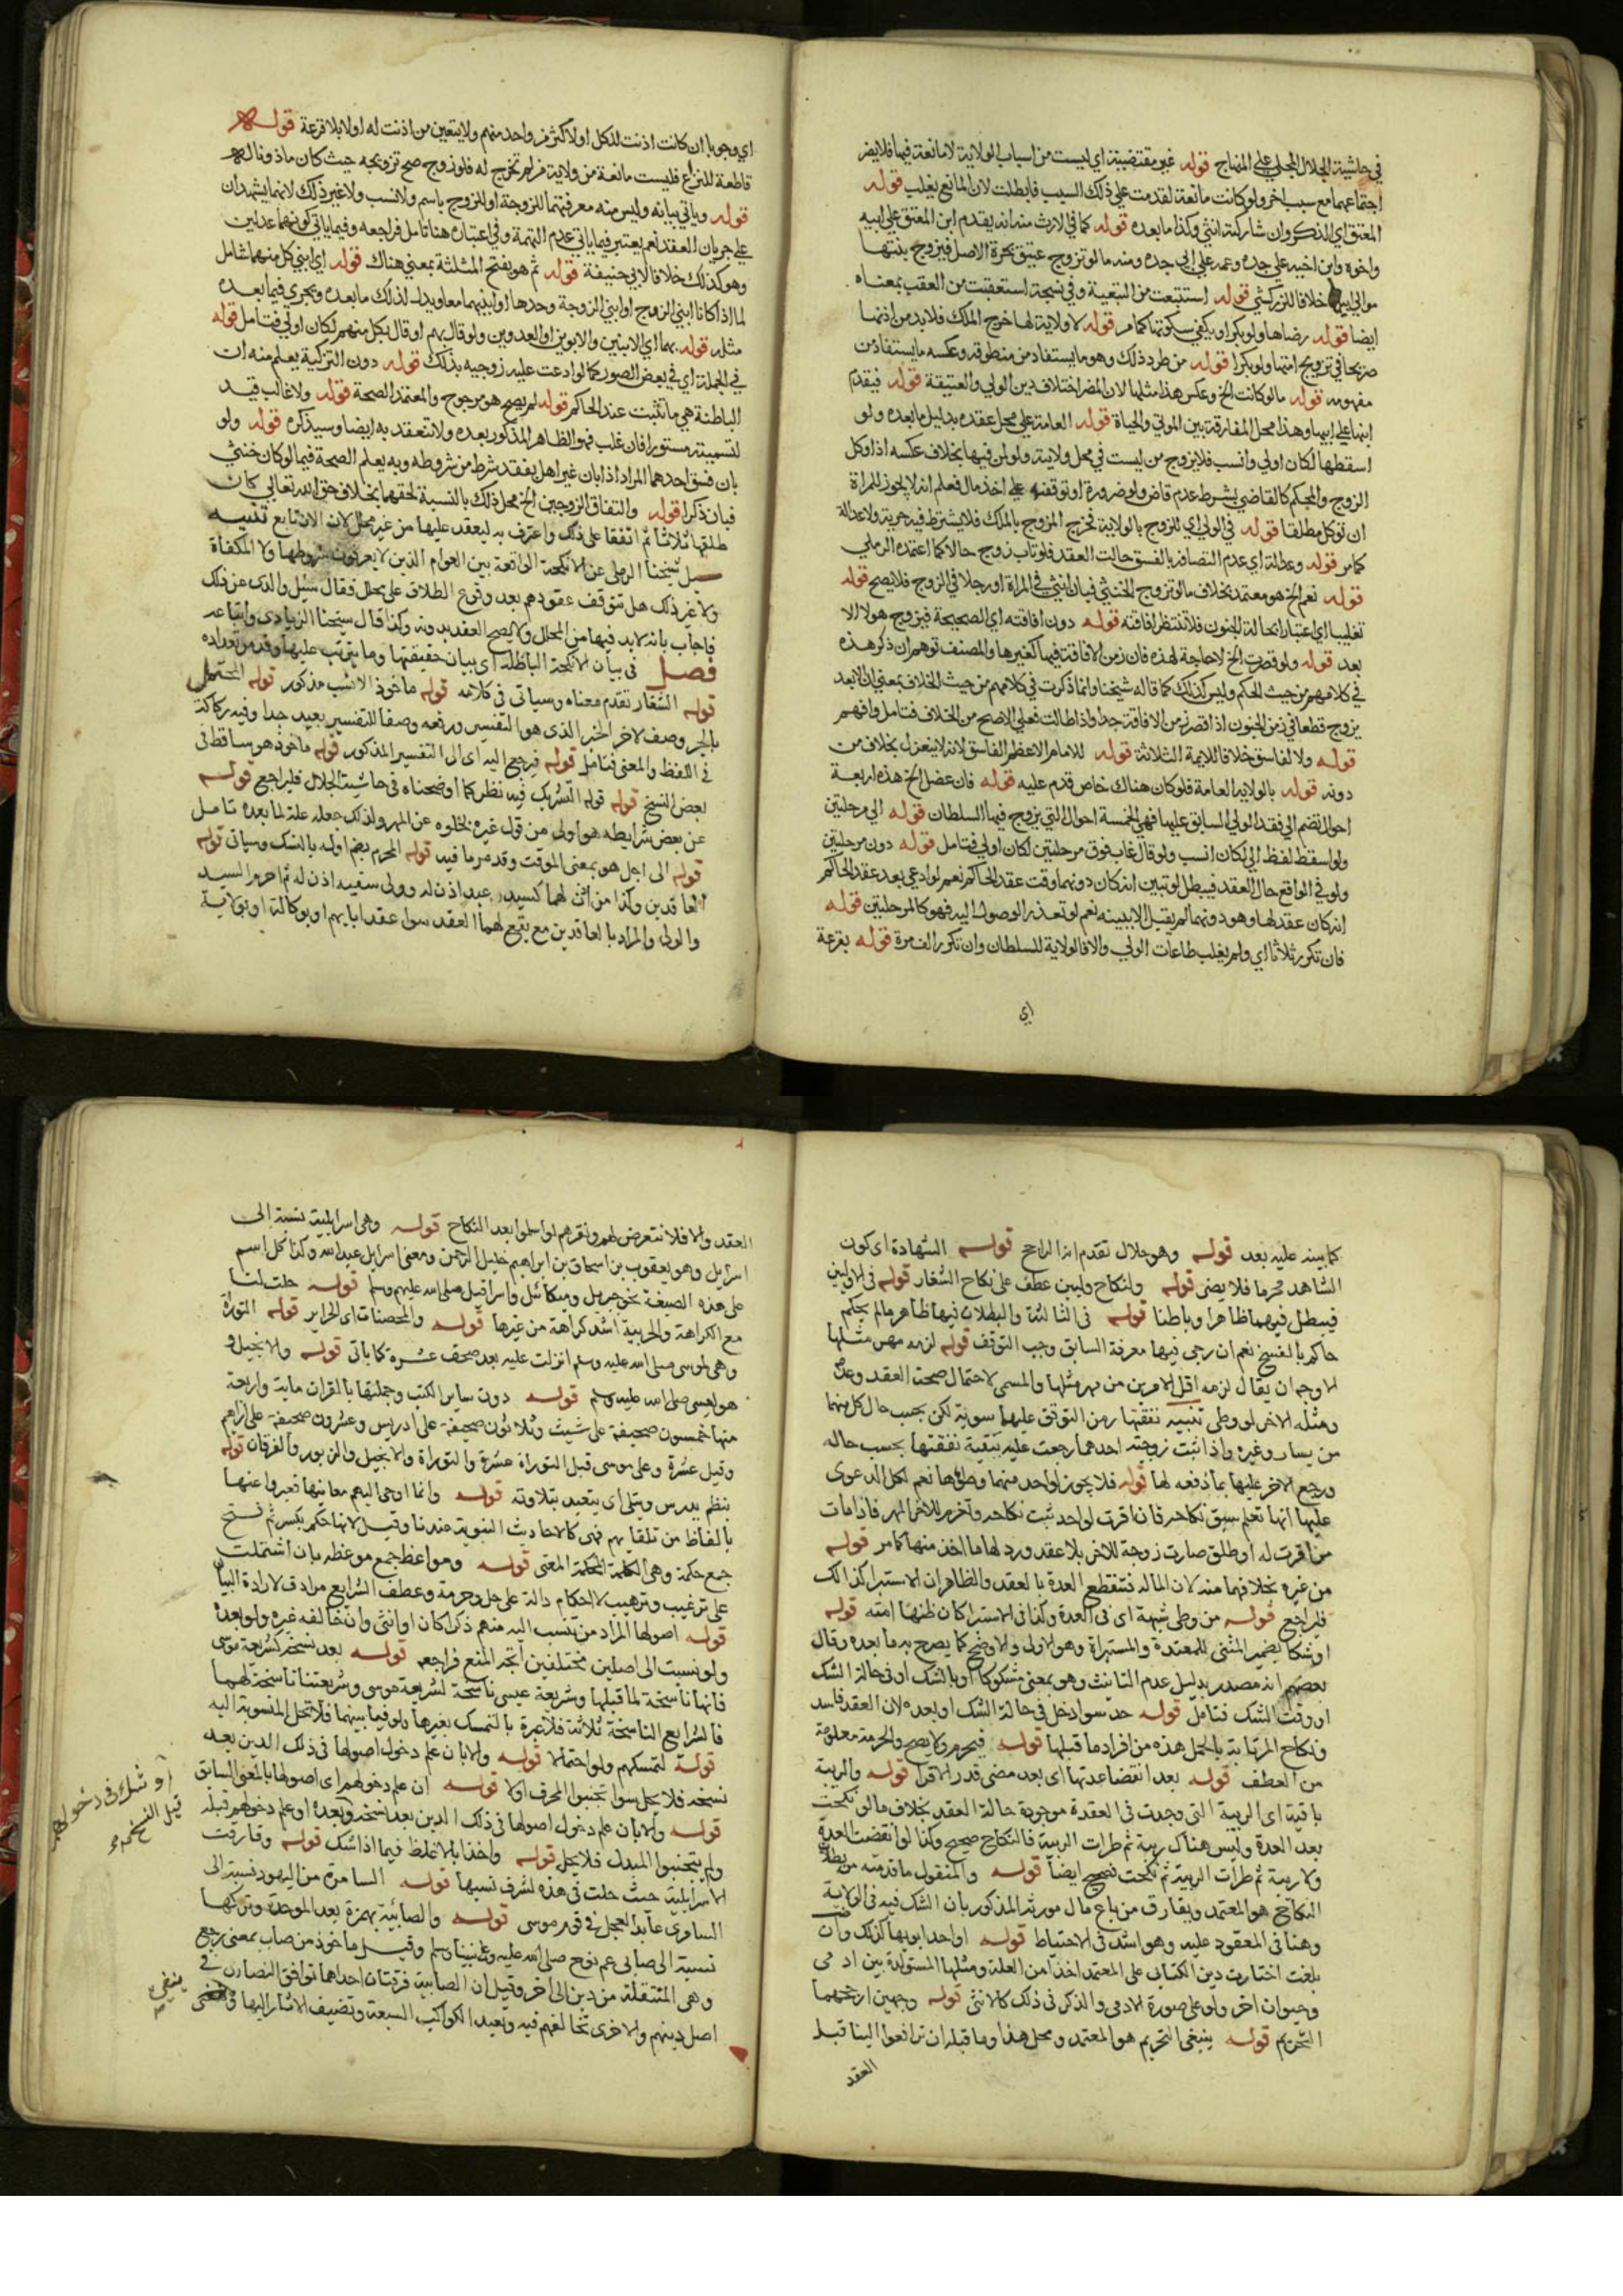 في حاشية الجلال المحلي على المنهاج قوله غير مقتضيية اي ليست من اسباب الولاية لا مانعة فيها فلا يضر
اجتماعهما مع سبب اخر ولو كانت مانعة لقدمت على ذلك السبب فابطلت لان المانع يغلب قوله
المعتق اي الذكر وان شاركته انثى وكذا ما بعده قوله كما في الارث منه انه يقدم ابن المعتق على ابيه
واخوه وابن اخيه على جده وعمه على ابي جده ومنه ما لو تزوج عتيق بحرة الاصل فيزوج بنتها
موالي ابيها خلافا للزركشي قوله استتبعت من التبعية وفي نسخة استعقبت من العقب بمعناه
ايضا قوله رضاها ولو بكرا ويكفي سكوتها كما مر قوله لا ولاية لها خرج الملك فلا بد من اذنها
صريحا في تزويج امتها ولو بكرا قوله من طرد ذلك وهو ما يستفاد من منطوقه وعكسه ما يستفاد من
مفهومه قوله ما لو كانت الخ وعكس هذا مثلها لان المضر اختلاف دين الولي والعتيقة قوله فيقدم
ابنها على ابيها وهذا محل المفارقة بين الموتى والحياة قوله العامة على محل عقده بدليل ما بعده ولو
اسقطها لكان اولى وانسب فلا يزوج من ليست في محل ولايته ولو لمن فيها بخلاف عكسه اذا وكل
الزوج والمحكم كالقاضي بشرط عدم قاض ولو ضرورة او توقفه على اخذ مال فعلم انه لا يجوز للمراة
ان توكل مطلقا قوله في الولي اي للزوج بالولاية فخرج المزوج بالملك فلا يشترط فيه حرية ولا عدالة
كما مر قوله وعدالة اي عدم اتصافه بالفسق حالت العقد فلو تاب زوج حالا كما اعتمده الرملي
قوله نعم الخ هو معتمد بخلاف ما لو تزوج الخنثى فبان انثى في المراة او رجلا في الزوج فلا يصح قوله
تغليبا اي اعتبارا لحالة الجنون فلا تنتظر افاقته قوله دون افاقته اي الصحيحة فيزوج هو لا الا
بعد قوله ولو قصرت الخ لا حاجة لهذه فان زمن الافاقة فيها كغيرها والمصنف توهم ان ذكر هذه
في كلامهم من حيث الحكم وليس كذلك كما قاله شيخنا وانما ذكرت في كلامهم من حيث الخلاف بمعنى ان الابعد
يزوج قطعا في زمن الجنون اذا قصر زمن الافاقة جدا واذا طالت فعلى الاصح من الخلاف فتامل وافهم
قوله ولا لفاسق خلافا للايمة الثلاثة قوله للامام الاعظم الفاسق لانه لا ينعزل بخلاف من
دونه قوله بالولاية العامة فلو كان هناك خاص قدم عليه قوله فان عضل الخ هذه اربعة
احوال تضم الى فقد الولي السابق عليها فهي الخمسة احوال التي يزوج فيها السلطان قوله الى مرحلتين
ولو اسقط لفظ الى لكان انسب ولو قال غاب فوق مرحلتين لكان اولى فتامل قوله دون مرحلتين
ولو في الواقع حال العقد فيبطل لو تبين انه كان دونهما وقت عقد الحاكم نعم لو ادعى بعد عقد الحاكم
انه كان عقد لها وهو دونهما لم يقبل الا ببينه نعم لو تعذر الوصول اليه فهو كالمرحلتين قوله
فان تكرر ثلاثا اي ولم يغلب طاعات الولي والا فالولاية للسلطان وان تكرر الف مرة قوله بقرعة
اي
اي وجوبا ان كانت اذنت للكل او لاكثر من واحد منهم ولا يتعين من اذنت له اولا بلا قرعة قوله
قاطعة للنزاع فليست مانعة من ولاية من لم تخرج له فلو زوج صح تزويجه حيث كان ماذونا له
قوله وياتي بيانه وليس منه معرفتهما للزوجة او للزوج باسم ولا نسب ولا غير ذلك لانهما يشهدان
على جريان العقد نعم يعتبر فيما ياتي عدم التهمة وفي اعتباره هنا تامل فراجعه وفيما ياتي كونهما عدلين
وهو كذلك خلافا لابي حنيفة قوله ثم هو بفتح المثلثة بمعنى هناك قوله اي ابني كل منهما شامل
لما اذا كانا ابني الزوج او ابني الزوجة وحدها او ابنيهما معا ويدل لذلك ما بعده ويجري فيما بعده
مثله قوله بهما اي الابنين والابوين او العدوين ولو قال بهم او قال بكل منهم لكان اولى فتامل قوله
في الجملة اي في بعض الصور كما لو ادعت عليه زوجيه بذلك قوله دون التزكية يعلم منه ان
الباطنة هي ما تثبت عند الحاكم قوله لم يصح هو مرجوح والمعتمد الصحة قوله ولا غالب قيد
لتسميته مستورا فان غلب فهو الظاهر المذكور بعده ولا تنعقد به ايضا وسيذكره قوله ولو
بان فسق احدهما المراد اذا بان غير اهل بفقد شرط من شروطه وبه يعلم الصحة فيما لو كان خنثى
فبان ذكرا قوله والتفاق الزوجين الخ محل ذلك بالنسبة لحقهما بخلاف حق الله تعالى كان
طلقها ثلاثا ثم اتفقا على ذلك واعترف به ليعقد عليها من غير محلل لان الان تابع تنبيه
سيل شيخنا الرملي عن الانكحة الواقعة بين العوام الذين لا يعرفون شروطها ولا المكفاة
ولا غير ذلك هل تتوقف عقودهم بعد وقوع الطلاق على محلل فقال سيل والدي عن ذلك
فاجاب بانه لا بد فيها من المحلل ولا يصح العقد بدونه وكذا قال شيخنا الزيادي واتباعه
فصل في بيان الانكحة الباطلة اي بيان حقيقتها وما يترتب عليها وقد مر تعداده
قوله الشغار تقدم معناه وسياتي في كلامه قوله ماخوذ الانسب مذكور قوله المحتمل
بالجر وصف لاخر الخبر الذي هو التفسير ورفعه وصفا للتفسير بعيد جدا وفيه ركاكة
في اللفظ والمعنى فتامل قوله فيرجع اليه اي الى التفسير المذكور قوله ماخوذ هو ساقط في
بعض النسخ قوله قوله التشريك فيه نظر كما اوضحناه في حاشية الجلال فليراجع قوله
عن بعض شرايطه هو اولى من قول غيره لخلوه عن المهر ولذلك جعله علة لما بعده تامل
قوله الى اجل هو بمعنى الموقت وقد مر ما فيه قوله المحرم بضم اوله بالنسك وسياتي قوله
العاقدين وكذا من اذن لهما كسيد عبد اذن له وولي سفيه اذن له ثم احرم السيد
والولي والمراد بالعاقدين مع يقع لهما العقد سوا عقدا بايهم او بوكالة او بولاية
كما بينه عليه بعد قوله وهو حلال تقدم انه الراجح قوله الشهادة اي كون
الشاهد محرما فلا يضر قوله ولنكاح وليين عطف على نكاح الشغار قوله في الاوليين
فيبطل فيهما ظاهرا وباطنا قوله في الثالثة والبطلان فيها ظاهر ما لم يحكم
حاكم بالفسخ نعم ان رجي فيها معرفة السابق وجب التوقف قوله لزمه مهر مثلها
الاوجه ان يقال لزمه اقل الامرين من مهر مثلها والمسمى لاحتمال صحت العقد وعد
ومثله الاخر لو وطي تنبيه نفقتها زمن التوقف عليهما سوية لكن بحسب حال كل منهما
من يسار وغيره واذا ثبت زوجية احدهما رجعت عليه بتقية نفقتها بحسب حاله
ورجع الاخر عليها بما دفعه لها قوله فلا يجوز لواحد منهما وطؤها نعم لكل الدعوى
عليها انها تعلم سبق نكاحه فان اقرت لواحد ثبت نكاحه وغرم للاخر المهر فاذا مات
من اقرت له او طلق صارت زوجة للاخر بلا عقد ورد لها ما اخذ منها كما مر قوله
من غيره بخلافهما منه لان الماله فتنقطع العدة بالعقد والظاهر ان الاستبرا كذلك
فليراجع قوله من وطي شبهة اي في العدة وكذا في الاستبرا كان ظنها امته قوله
او شكا بضمير المثنى للمعتدة والمستبراة وهو الاولى والاوضح كما يصرح به ما بعده وقال
بعضهم انه مصدر بدليل عدم التانيث وهو بمعنى مشكوكا او بالشك او في حالة الشك
او وقت الشك فتامل قوله حد سوا دخل في حالة الشك او بعده لان العقد فاسد
ونكاح المرتابة بالحمل هذه من افراد ما قبلها قوله فيحرم ولا يصح والحرمة معلومة
من العطف قوله بعد انقضا عدتها اي بعد مضي قدر الاقرا قوله والريبة
باقية اي الريبة التي وجدت في العقدة موجودة حالة العقد بخلاف ما لو نكحت
بعد العدة وليس هناك ريبة ثم طرات الريبة فالنكاح صحيح وكذا لو انقضت العدة
ولا ريبة ثم طرات الريبة ثم نكحت فيصح ايضا قوله والمنقول ما قدمته من بطلان
النكاح هو المعتمد ويفارق من باع مال مورثه المذكور بان الشك فيه في الولاية
وهنا في المعقود عليه وهو اشد في الاحتياط قوله او احد ابويها كذلك وان
بلغت اختارت دين الكتابي على المعتمد اخذا من العلة ومثلها المستولدة بين ادمي
وحيوان اخر ولو على صورة الادمي والذكر في ذلك كالانثى قوله وجهين ارجحهما
التحريم قوله ينبغي التحريم هو المعتمد ومحل هذا وما قبله ان ترافعوا الينا قبل
العقد
العقد والا فلا نتعرض لهم ونقرهم لو اسلموا بعد النكاح قوله وهي اسرايلية نسبة الى
اسرايل وهو يعقوب بن اسحاق بن ابراهيم خليل الرحمن ومعنى اسرايل عبد الله وكذا كل اسم
على هذه الصيغة نحو جبريل وميكائيل واسرافيل صلى الله عليهم وسلم قوله حلت لنا
مع الكراهة والحربية اشد كراهة من غيرها قوله والمحصنات اي الحراير قوله التوراة
وهي لموسى صلى الله عليه وسلم انزلت عليه بعد صحف عشرة كما ياتي قوله والانجيل و
هو لعيسى صلى الله عليه وسلم قوله دون ساير الكتب وجملتها بالقران ماية واربعة
منها خمسون صحيفة على شيث وثلاثون صحيفة على ادريس وعشرون صحيفة على ابراهيم
وقيل عشرة وعلى موسى قبل التوراة عشرة والتوراة والانجيل والزبور والفرقان قوله
بنظم يدرس ويتلى اي يتعبد بتلاوته قوله وانما اوحي اليهم معانيها فعبروا عنها
بالفاظ من تلقايهم فهي كالاحاديث النبوية عندنا وقيل لانها حكم بكسر ثم فتح
جمع حكمة وهي الكلمة المحكمة المعنى قوله ومواعظ جمع موعظه بان اشتملت
على ترغيب وترهيب لا احكام دالة على حل وحرمة وعطف الشرايع مرادف لارادة البيا
قوله اصولها المراد من تنسب اليه منهم ذكرا كان او انثى وان خالفه غيره ولو بعده
ولو نسبت الى اصلين مختلفين اتجه المنع فراجعه قوله بعد نسخه كشريعة موسى
فانها ناسخة لما قبلها وشريعة عيسى ناسخة لشريعة موسى وشريعتنا ناسخة لهما
فالشرايع الناسخة ثلاثة فلا عبرة بالتمسك بغيرها ولو فيما بينهما فلا تحل المنسوبة اليه
قوله لتمسكهم ولو احتمالا قوله والا بان علم دخول اصولها في ذلك الدين بعد
نسخه فلا يحل سوا تجنبوا المحرف او لا قوله ان علم دخولهم اي اصولها بالمعنى السابق
قوله والا بان علم دخول اصولها في ذلك الدين بعد نسخه وبعده او علم دخولهم قبله
ولم يتجنبوا المبدل فلا يحل قوله واخذا بالاغلظ فيما اذا شك قوله وفارقت
الاسرايلية حيث حلت في هذه لشرف نسبها قوله السامرة من اليهود نسبة الى
السامري عابد العجل في قوم موسى قوله والصابئية بهمزة بعد الموحدة وتركها
نسبة الى صابي عم نوح صلى الله عليه وعلى نبينا وسلم وقيل ماخوذ من صاب بمعنى رجع
وهي المنتقلة من دين الى اخر وقيل ان الصابية فرقتان احداهما توافق النصارى في
اصل دينهم والاخرى تخالفهم فيه وتعبد الكواكب السبعة وتضيف الاثار اليها
او شك في دخولهم
قبل النسخ